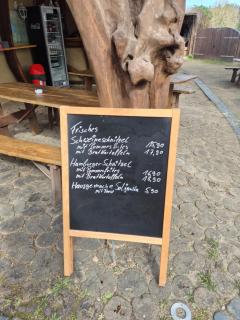 Frisches
Schweineschnitzel
mit Pommes frites 15,90
mit Bratkartoffeln 17,90
Hamburger Schnitzel
mit Pommes frites 16,90
mit Bratkartoffeln 18,90
Hausgemachte Soljanka
mit Toast 5,90